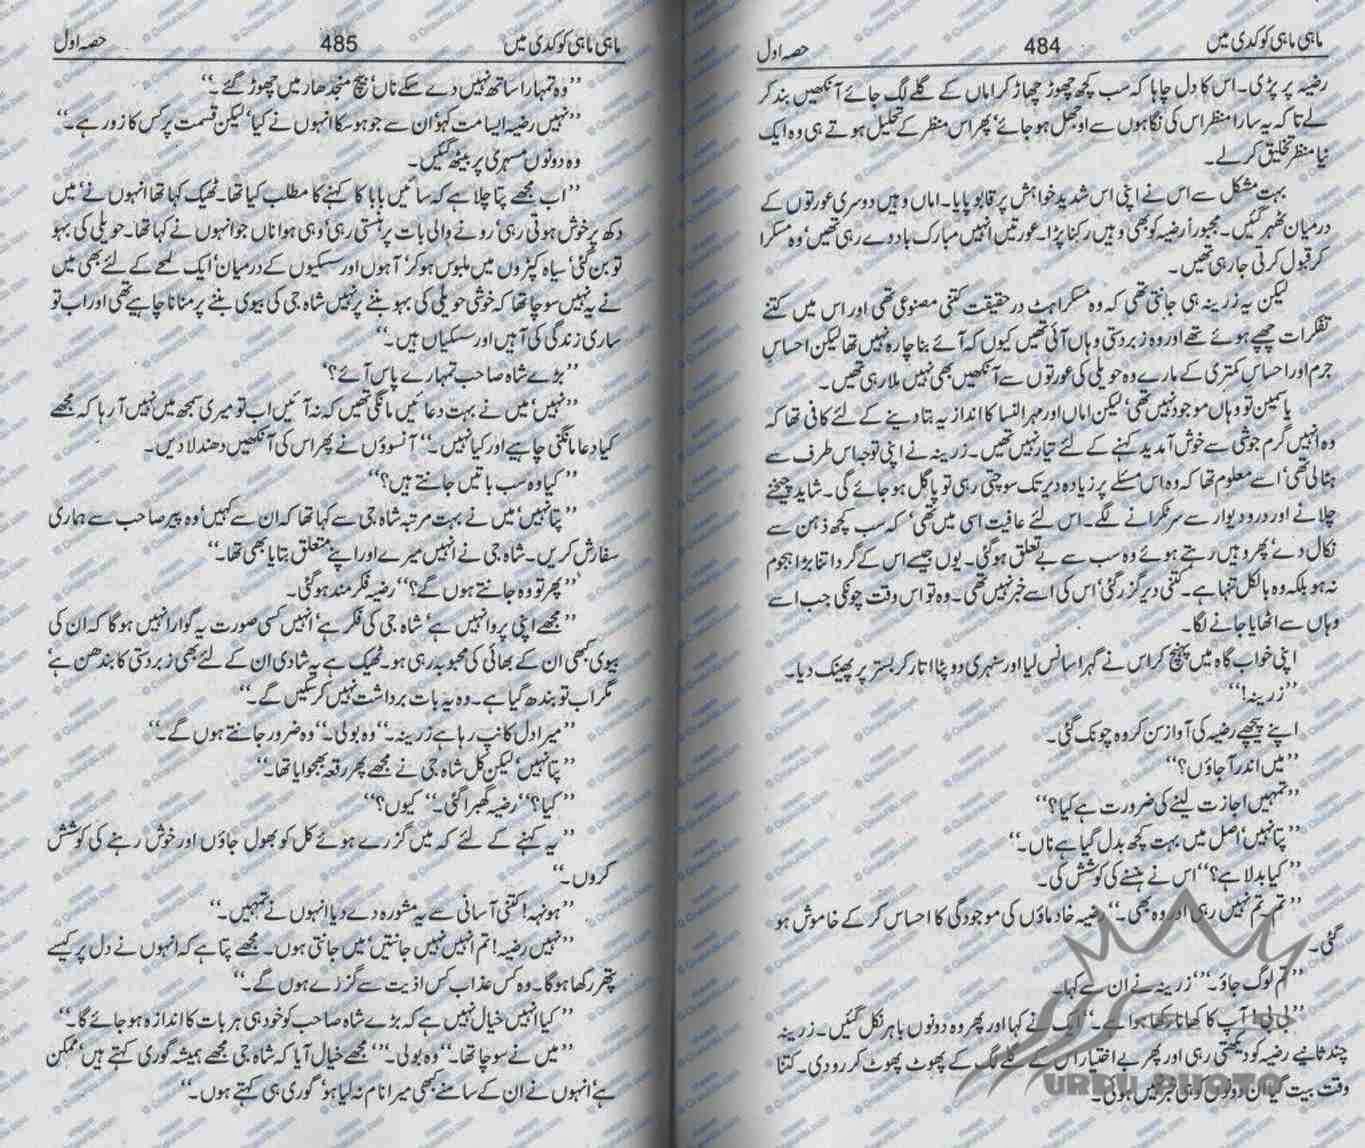 ماہی ماہی کوکدی میں 484 حصہ اول
رضیہ پر پڑی۔ اس کا دل چاہا کہ سب کچھ چھوڑ چھاڑ کر اماں کے گلے لگ جائے آنکھیں بند کر
لے تاکہ یہ سارا منظر اس کی نگاہوں سے اوجھل ہو جائے‘ پھر اس منظر کے تحلیل ہوتے ہی وہ ایک
نیا منظر تخلیق کر لے۔
بہت مشکل سے اس نے اپنی اس شدید خواہش پر قابو پایا۔ اماں وہیں دوسری عورتوں کے
درمیان ٹھہر گئیں۔ مجبوراً رضیہ کو بھی وہیں رکنا پڑا۔ عورتیں انہیں مبارک باد دے رہی تھیں‘ وہ مسکرا
کر قبول کرتی جا رہی تھیں۔
لیکن یہ زرینہ ہی جانتی تھی کہ وہ مسکراہٹ در حقیقت کتنی مصنوعی تھی اور اس میں کتنے
تفکرات چھپے ہوئے تھے اور وہ زبردستی وہاں آئی تھیں کیوں کہ آئے بنا چارہ نہیں تھا لیکن احساسِ
جرم اور احساسِ کمتری کے مارے وہ حویلی کی عورتوں سے آنکھیں بھی نہیں ملا رہی تھیں۔
یاسمین تو وہاں موجود نہیں تھی‘ لیکن اماں اور مہر النسا کا انداز یہ بتا دینے کے لئے کافی تھا کہ
وہ انہیں گرم جوشی سے خوش آمدید کہنے کے لئے تیار نہیں تھیں۔ زرینہ نے اپنی توجہ اس طرف سے
ہٹا لی تھی‘ اسے معلوم تھا کہ وہ اس مسئلے پر زیادہ دیر تک سوچتی رہی تو پاگل ہو جائے گی۔ شاید چیخنے
چلانے اور در و دیوار سے سر ٹکرانے لگے۔ اس لئے عافیت اسی میں تھی‘ کہ سب کچھ ذہن سے
نکال دے‘ پھر وہیں رہتے ہوئے وہ سب سے بے تعلق ہو گئی۔ یوں جیسے اس کے گرد اتنا بڑا ہجوم
نہ ہو بلکہ وہ بالکل تنہا ہے۔ کتنی دیر گزر گئی‘ اس کی اسے خبر نہیں تھی۔ وہ تو اس وقت چونکی جب اسے
وہاں سے اٹھایا جانے لگا۔
اپنی خواب گاہ میں پہنچ کر اس نے گہرا سانس لیا اور سنہری دوپٹا اتار کر بستر پر پھینک دیا۔
’’زرینہ!‘‘
اپنے پیچھے رضیہ کی آواز سن کر وہ چونک گئی۔
’’میں اندر آ جاؤں؟‘‘
’’تمہیں اجازت لینے کی ضرورت ہے کیا؟‘‘
’’پتا نہیں‘ اصل میں بہت کچھ بدل گیا ہے ناں۔‘‘
’’کیا بدلا ہے؟‘‘ اس نے ہنسنے کی کوشش کی۔
’’تم‘ تم نہیں رہی اور وہ بھی۔‘‘ رضیہ خادماؤں کی موجودگی کا احساس کر کے خاموش ہو
گئی۔
’’تم لوگ جاؤ۔‘‘ زرینہ نے ان سے کہا۔
’’بی بی! آپ کا کھانا رکھا ہوا ہے۔‘‘ ایک نے کہا اور پھر وہ دونوں باہر نکل گئیں۔ زرینہ
چند ثانیے رضیہ کو دیکھتی رہی اور پھر بے اختیار اس کے گلے لگ کے پھوٹ پھوٹ کر رو دی۔ کتنا
وقت بیت گیا ان دونوں کو ہی خبر نہیں ہوئی۔
URDU PHOTO
ماہی ماہی کوکدی میں 485 حصہ اول
’’وہ تمہارا ساتھ نہیں دے سکے ناں‘ بیچ منجدھار میں چھوڑ گئے۔‘‘
’’نہیں رضیہ ایسا مت کہو‘ ان سے جو ہو سکا انہوں نے کیا‘ لیکن قسمت پر کس کا زور ہے۔‘‘
وہ دونوں مسہری پر بیٹھ گئیں۔
’’اب مجھے پتا چلا ہے کہ سائیں بابا کا کہنے کا مطلب کیا تھا۔ ٹھیک کہا تھا انہوں نے‘ میں
دکھ پر خوش ہوتی رہی‘ رونے والی بات پر ہنستی رہی‘ وہی ہوا ناں جو انہوں نے کہا تھا۔ حویلی کی بہو
تو بن گئی‘ سیاہ کپڑوں میں ملبوس ہو کر‘ آہوں اور سسکیوں کے درمیان‘ ایک لمحے کے لئے بھی میں
نے یہ نہیں سوچا تھا کہ خوشی حویلی کی بہو بننے پر نہیں شاہ جی کی بیوی بننے پر منانا چاہیے تھی اور اب تو
ساری زندگی کی آہیں اور سسکیاں ہیں۔‘‘
’’بڑے شاہ صاحب تمہارے پاس آئے؟‘‘
’’نہیں‘ میں نے بہت دعائیں مانگی تھیں کہ نہ آئیں اب تو میری سمجھ میں نہیں آ رہا کہ مجھے
کیا دعا مانگنی چاہیے اور کیا نہیں۔‘‘ آنسوؤں نے پھر اس کی آنکھیں دھندلا دیں۔
’’کیا وہ سب باتیں جانتے ہیں؟‘‘
’’پتا نہیں‘ میں نے بہت مرتبہ شاہ جی سے کہا تھا کہ ان سے کہیں‘ وہ پیر صاحب سے ہماری
سفارش کریں۔ شاہ جی نے انہیں میرے اور اپنے متعلق بتایا بھی تھا۔‘‘
’’پھر تو وہ جانتے ہوں گے؟‘‘ رضیہ فکر مند ہو گئی۔
’’مجھے اپنی پروا نہیں ہے‘ شاہ جی کی فکر ہے‘ انہیں کسی صورت یہ گوارا نہیں ہو گا کہ ان کی
بیوی کبھی ان کے بھائی کی محبوبہ رہی ہو۔ ٹھیک ہے یہ شادی ان کے لئے بھی زبردستی کا بندھن ہے‘
مگر اب تو بندھ گیا ہے۔ وہ یہ بات برداشت نہیں کر سکیں گے۔‘‘
’’میرا دل کانپ رہا ہے زرینہ۔‘‘ وہ بولی۔ ’’وہ ضرور جانتے ہوں گے۔‘‘
’’پتا نہیں‘ لیکن کل شاہ جی نے مجھے پھر رقعہ بھجوایا تھا۔‘‘
’’کیا؟‘‘ رضیہ گھبرا گئی۔ ’’کیوں؟‘‘
’’یہ کہنے کے لئے کہ میں گزرے ہوئے کل کو بھول جاؤں اور خوش رہنے کی کوشش
کروں۔‘‘
’’ہونہہ! کتنی آسانی سے یہ مشورہ دے دیا انہوں نے تمہیں۔‘‘
’’نہیں رضیہ! تم انہیں نہیں جانتیں‘ میں جانتی ہوں۔ مجھے پتا ہے کہ انہوں نے دل پر کیسے
پتھر رکھا ہو گا۔ وہ کس عذاب کس اذیت سے گزرے ہوں گے۔‘‘
’’کیا انہیں خیال نہیں ہے کہ بڑے شاہ صاحب کو خود ہی ہر بات کا اندازہ ہو جائے گا۔‘‘
’’میں نے سوچا تھا۔‘‘ وہ بولی۔ ’’مجھے خیال آیا کہ شاہ جی مجھے ہمیشہ گوری کہتے ہیں‘ ممکن
ہے‘ انہوں نے ان کے سامنے کبھی میرا نام نہ لیا ہو‘ گوری ہی کہتے ہوں۔‘‘